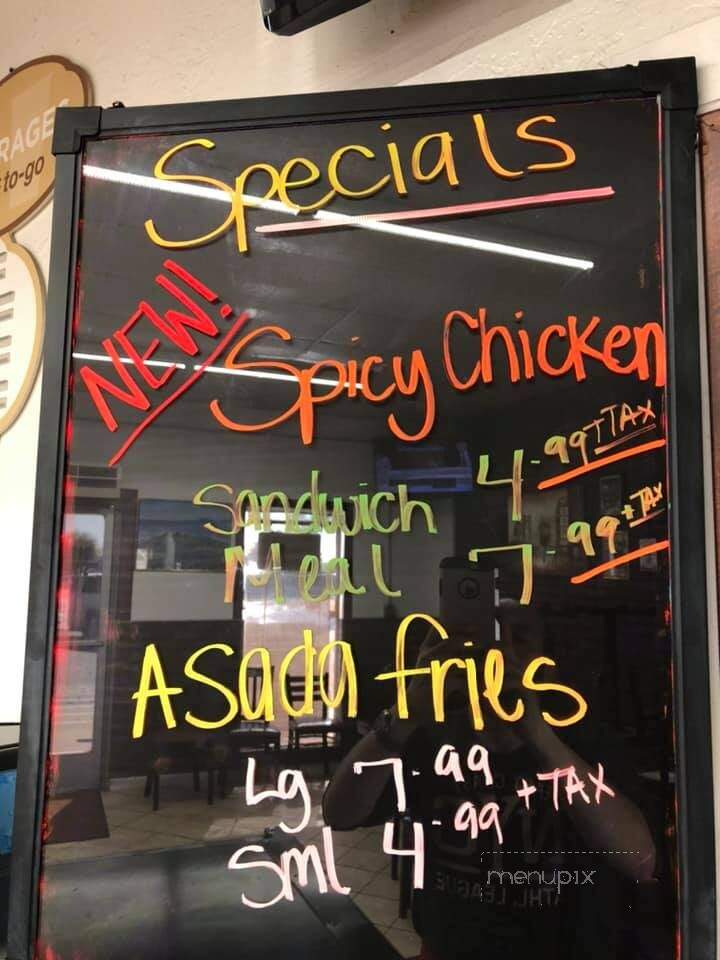 RAGES
to-go
Specials
NEW!
Spicy Chicken
Sandwich 4.99 + TAX
Meal 7.99 + TAX
Asada fries
Lg 7.99
Sml 4.99 + TAX
menupix